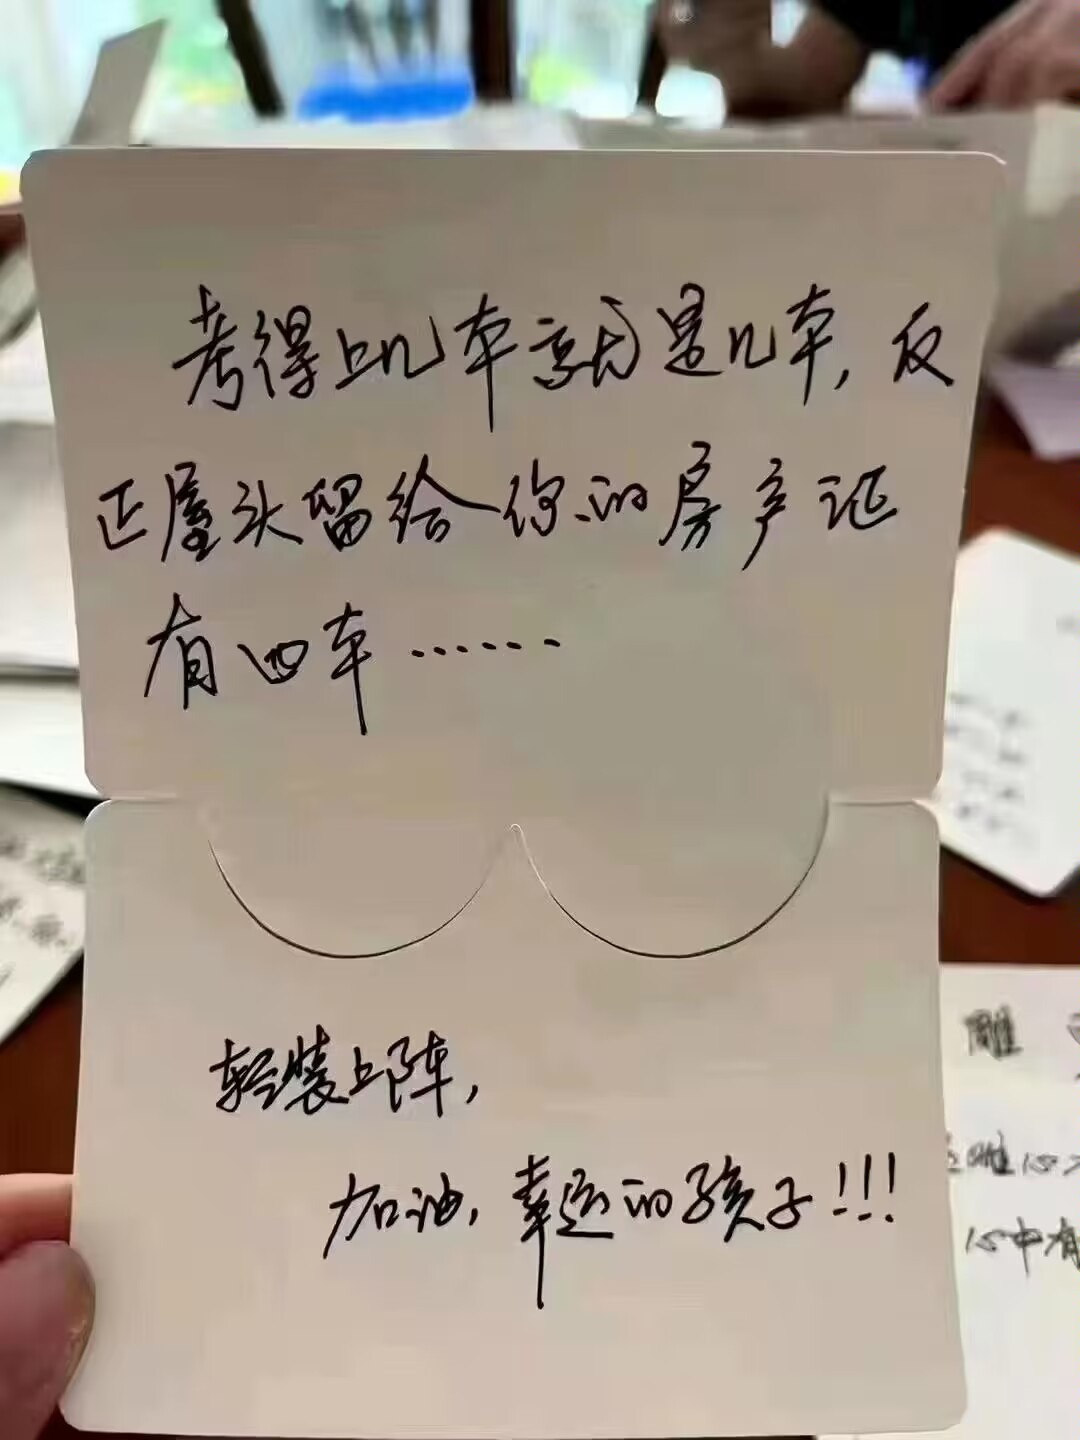 考得上几本就是几本,反
正屋头留给你的房产证
有四本……
轻装上阵,
加油,幸运的孩子!!!
雕
雕心
心中有